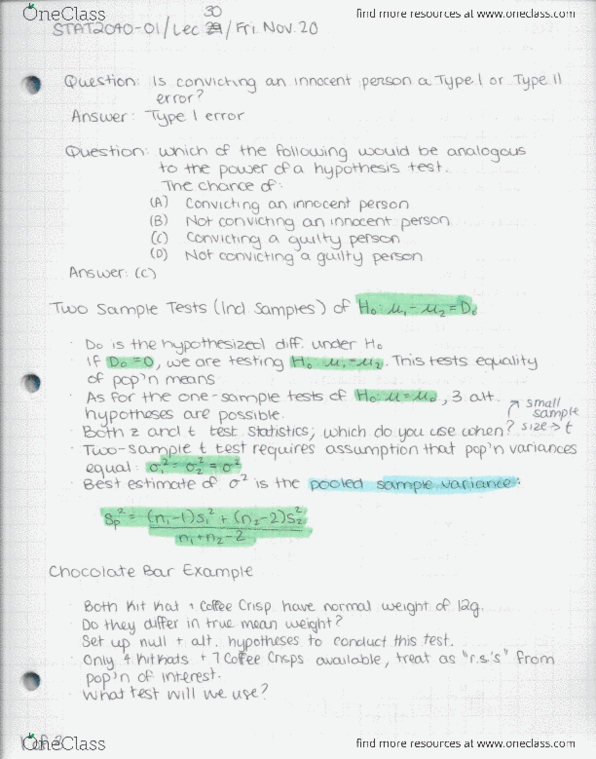 OneClass
find more resources at www.oneclass.com
30
STAT2040-01/Lec 29/Fri. Nov. 20
Question: Is convicting an innocent person a Type I or Type II
error?
Answer: Type I error
Question: which of the following would be analogous
to the power of a hypothesis test.
The chance of:
(A) Convicting an innocent person
(B) Not convicting an innocent person
(C) Convicting a guilty person
(D) Not convicting a guilty person
Answer: (c)
Two Sample Tests (Ind. Samples) of H₀: μ₁ - μ₂ = D₀
· D₀ is the hypothesized diff. under H₀
· If D₀ = 0, we are testing H₀: μ₁ = μ₂. This tests equality
of pop'n means
· As for the one-sample tests of H₀: μ = μ₀, 3 alt.
hypotheses are possible.
↗ small
sample
size → t
· Both z and t test statistics; which do you use when?
· Two-sample t test requires assumption that pop'n variances
equal: σ₁² = σ₂² = σ²
· Best estimate of σ² is the pooled sample variance:
Sp² = (n₁-1)S₁² + (n₂-2)S₂²
n₁+n₂-2
Chocolate Bar Example
· Both Kit Kat + Coffee Crisp have normal weight of 12g.
· Do they differ in true mean weight?
· Set up null + alt. hypotheses to conduct this test.
· Only 4 KitKats + 7 Coffee Crisps available, treat as "r.s.'s" from
pop'n of interest.
· What test will we use?
OneClass
find more resources at www.oneclass.com